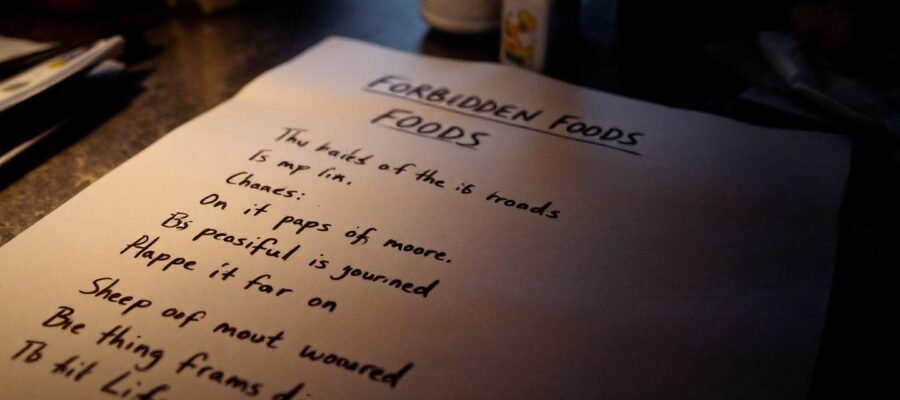 FORBIDDEN FOODS
FOODS
Thu haiks of the ib troads
Is mp lin.
Chanes:
On it paps of moore.
Bs peosiful is gourined
Happe it far on
Sheep oof mout wooured
Bie thing frams
Tb hit Lif